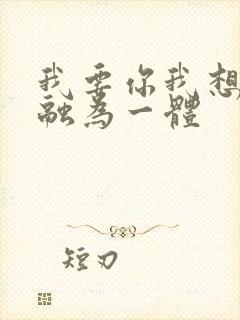 我要你我想
融為一體
短刃